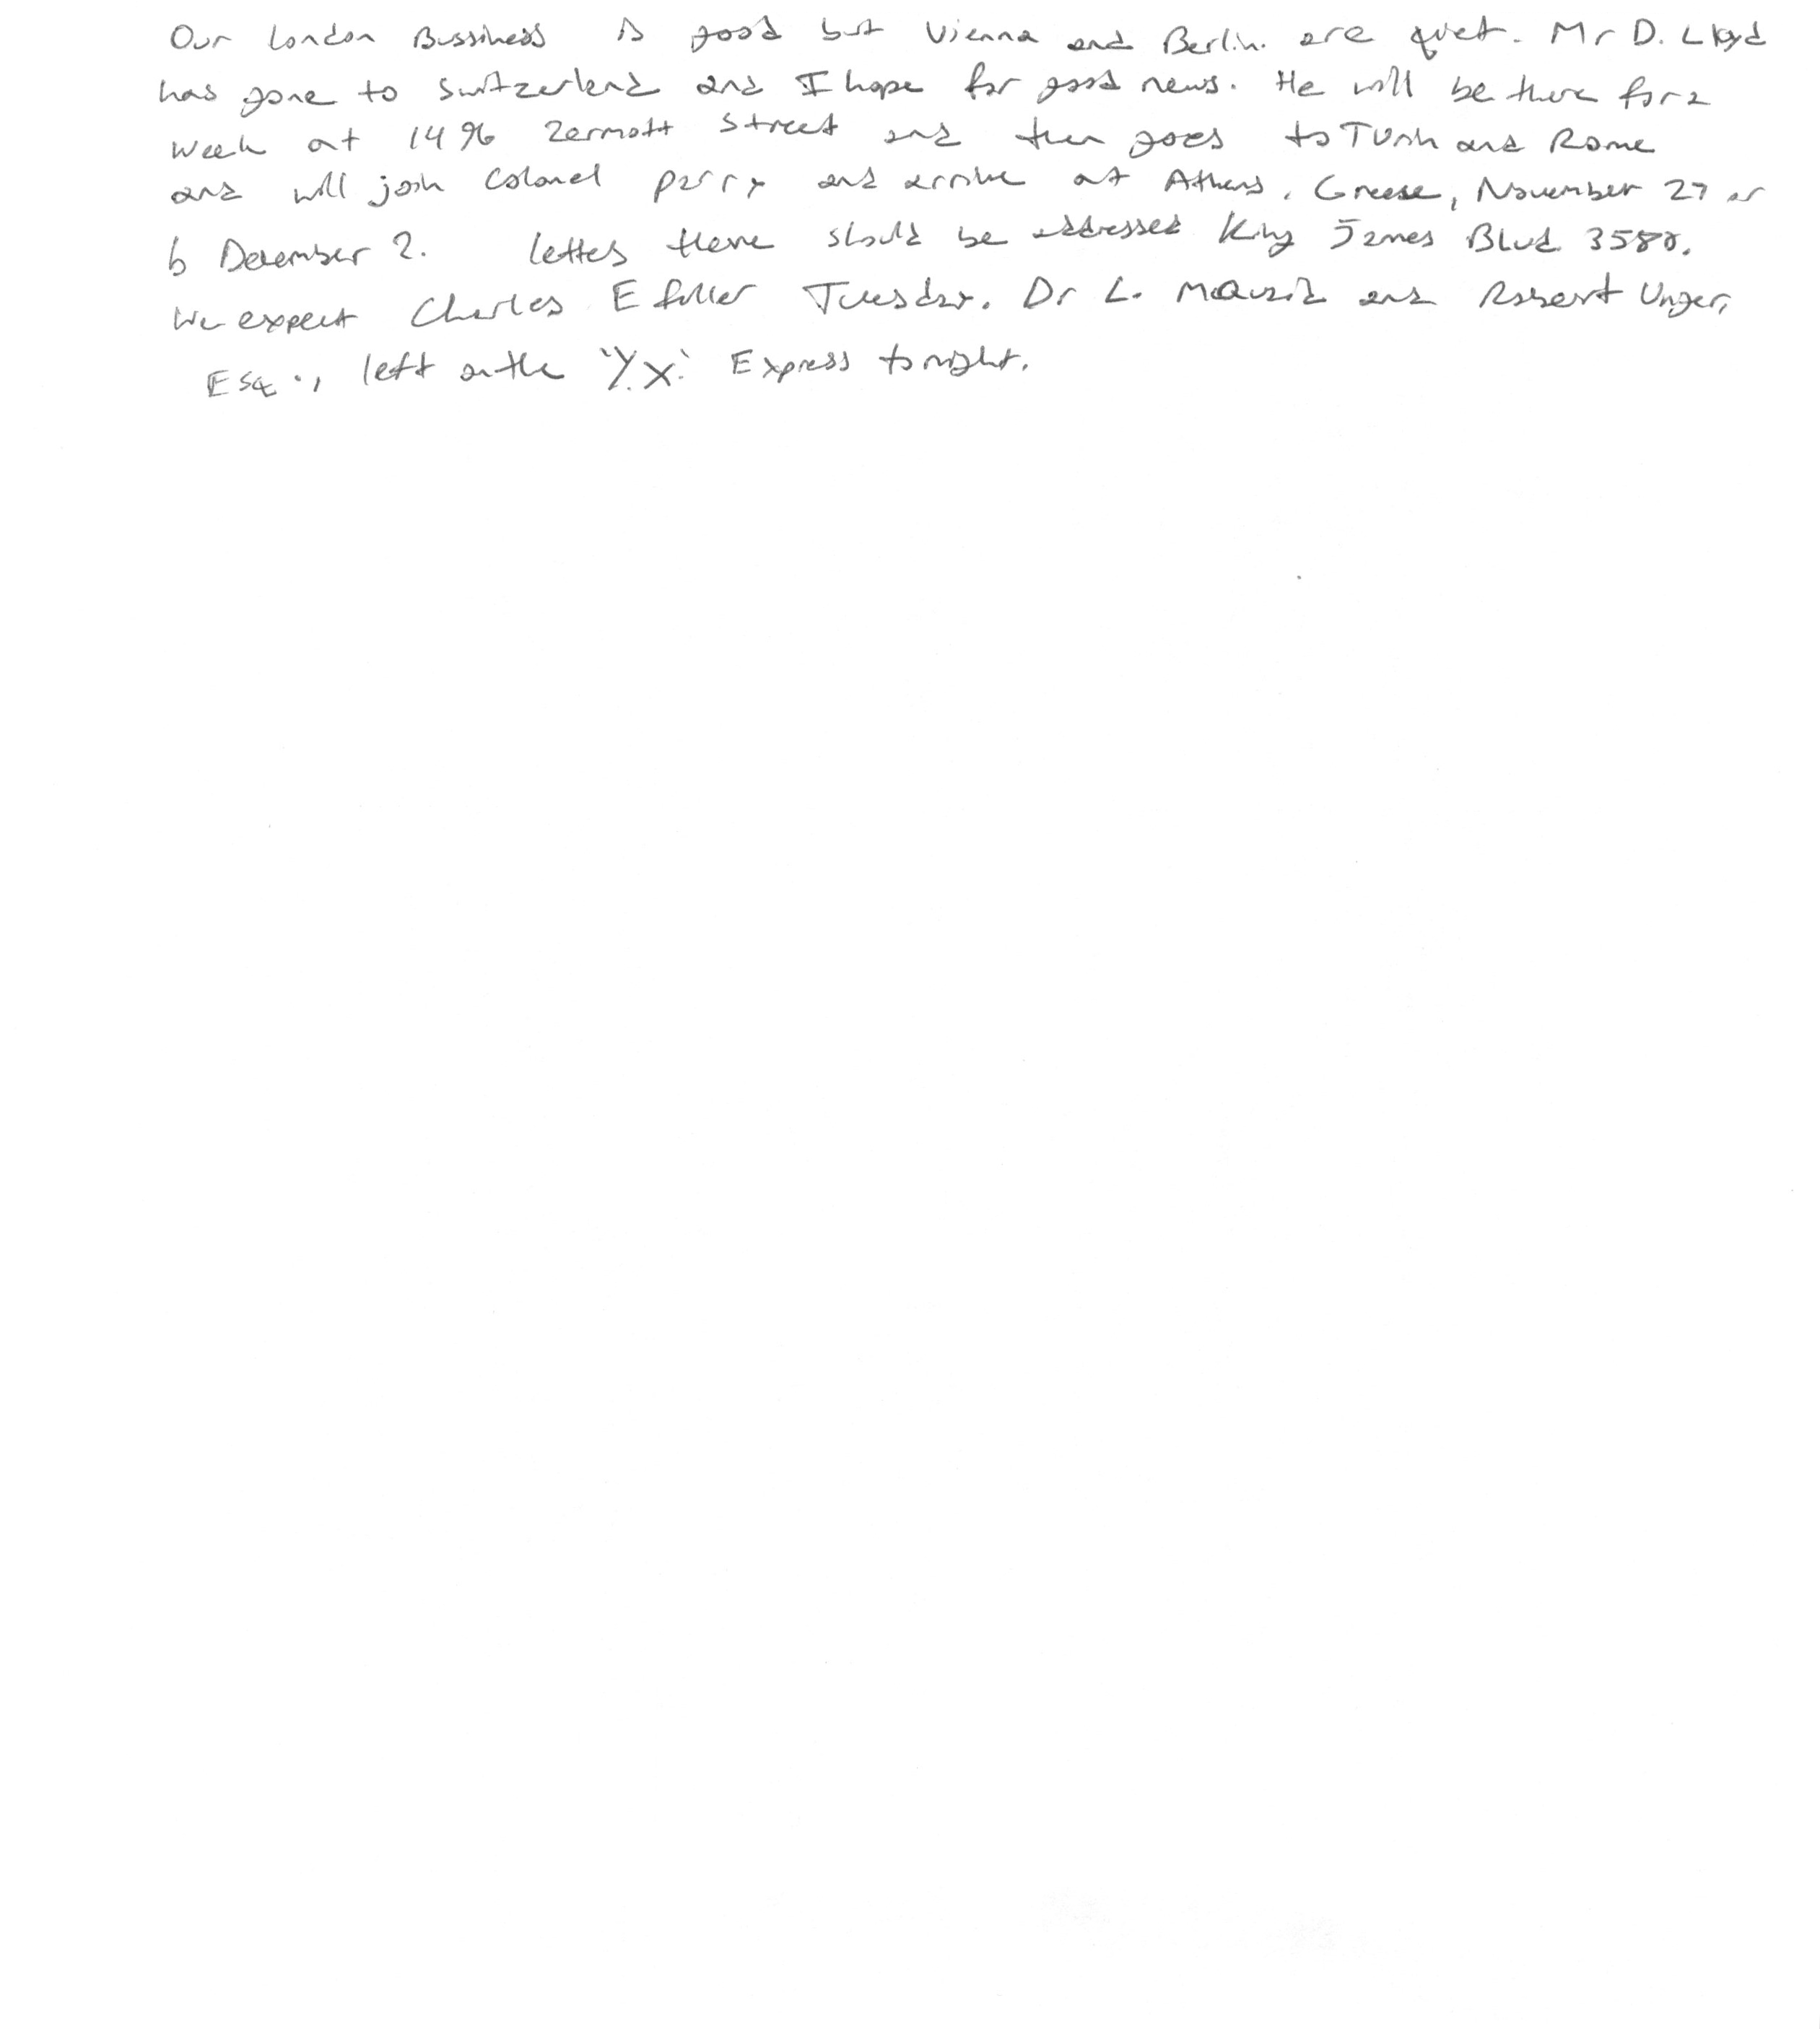 Our London Bussiness is good but Vienna and Berlin. are quiet. Mr D. Lloyd
has gone to Switzerland and I hope for good news. He will be there for a
week at 1496 Zermott Street and then goes to Turin and Rome
and will join Colonel Parry and arrive at Athens, Greese, November 27 or
December 2. letters there should be addressed King James Blvd 3580.
We expect Charles E fuller Tuesday. Dr L. and Robert Unger,
Esq., left on the "Y.X." Express tonight.